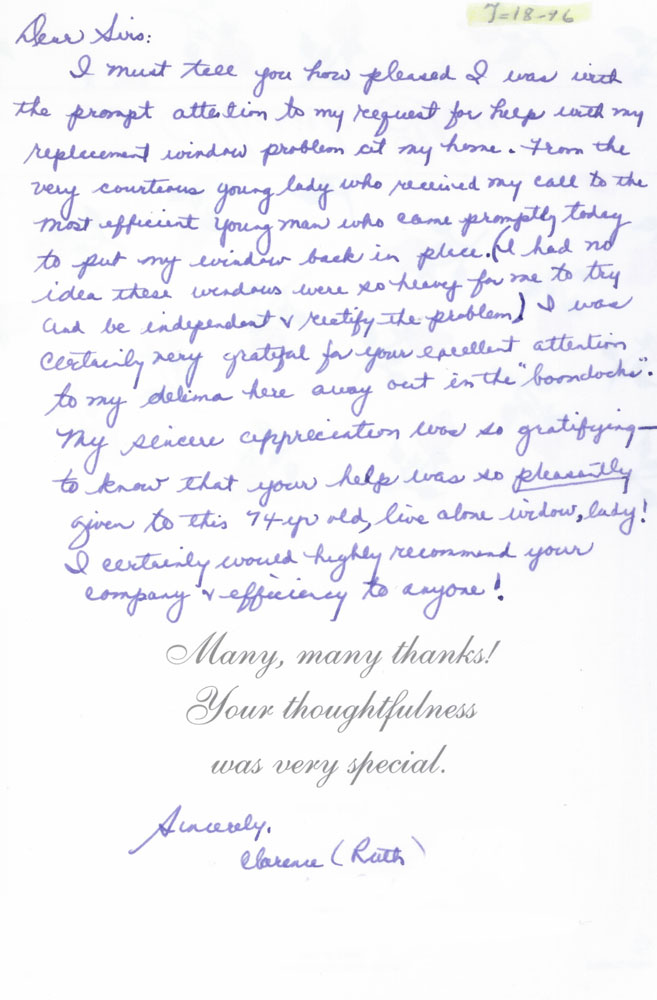 7-18-96
Dear Sirs:
I must tell you how pleased I was with
the prompt attention to my request for help with my
replacement window problem at my home. From the
very courteous young lady who received my call to the
most efficient young man who came promptly today
to put my window back in place. (I had no
idea these windows were so heavy for me to try
and be independent & rectify the problem) I was
certainly very grateful for your excellent attention
to my delima here away out in the "boondocks".
My sincere appreciation was so gratifying—
to know that your help was so pleasantly
given to this 74 yr old, live alone widow, lady!
I certainly would highly recommend your
company & efficiency to anyone!
Many, many thanks!
Your thoughtfulness
was very special.
Sincerely,
Clarence (Ruth)